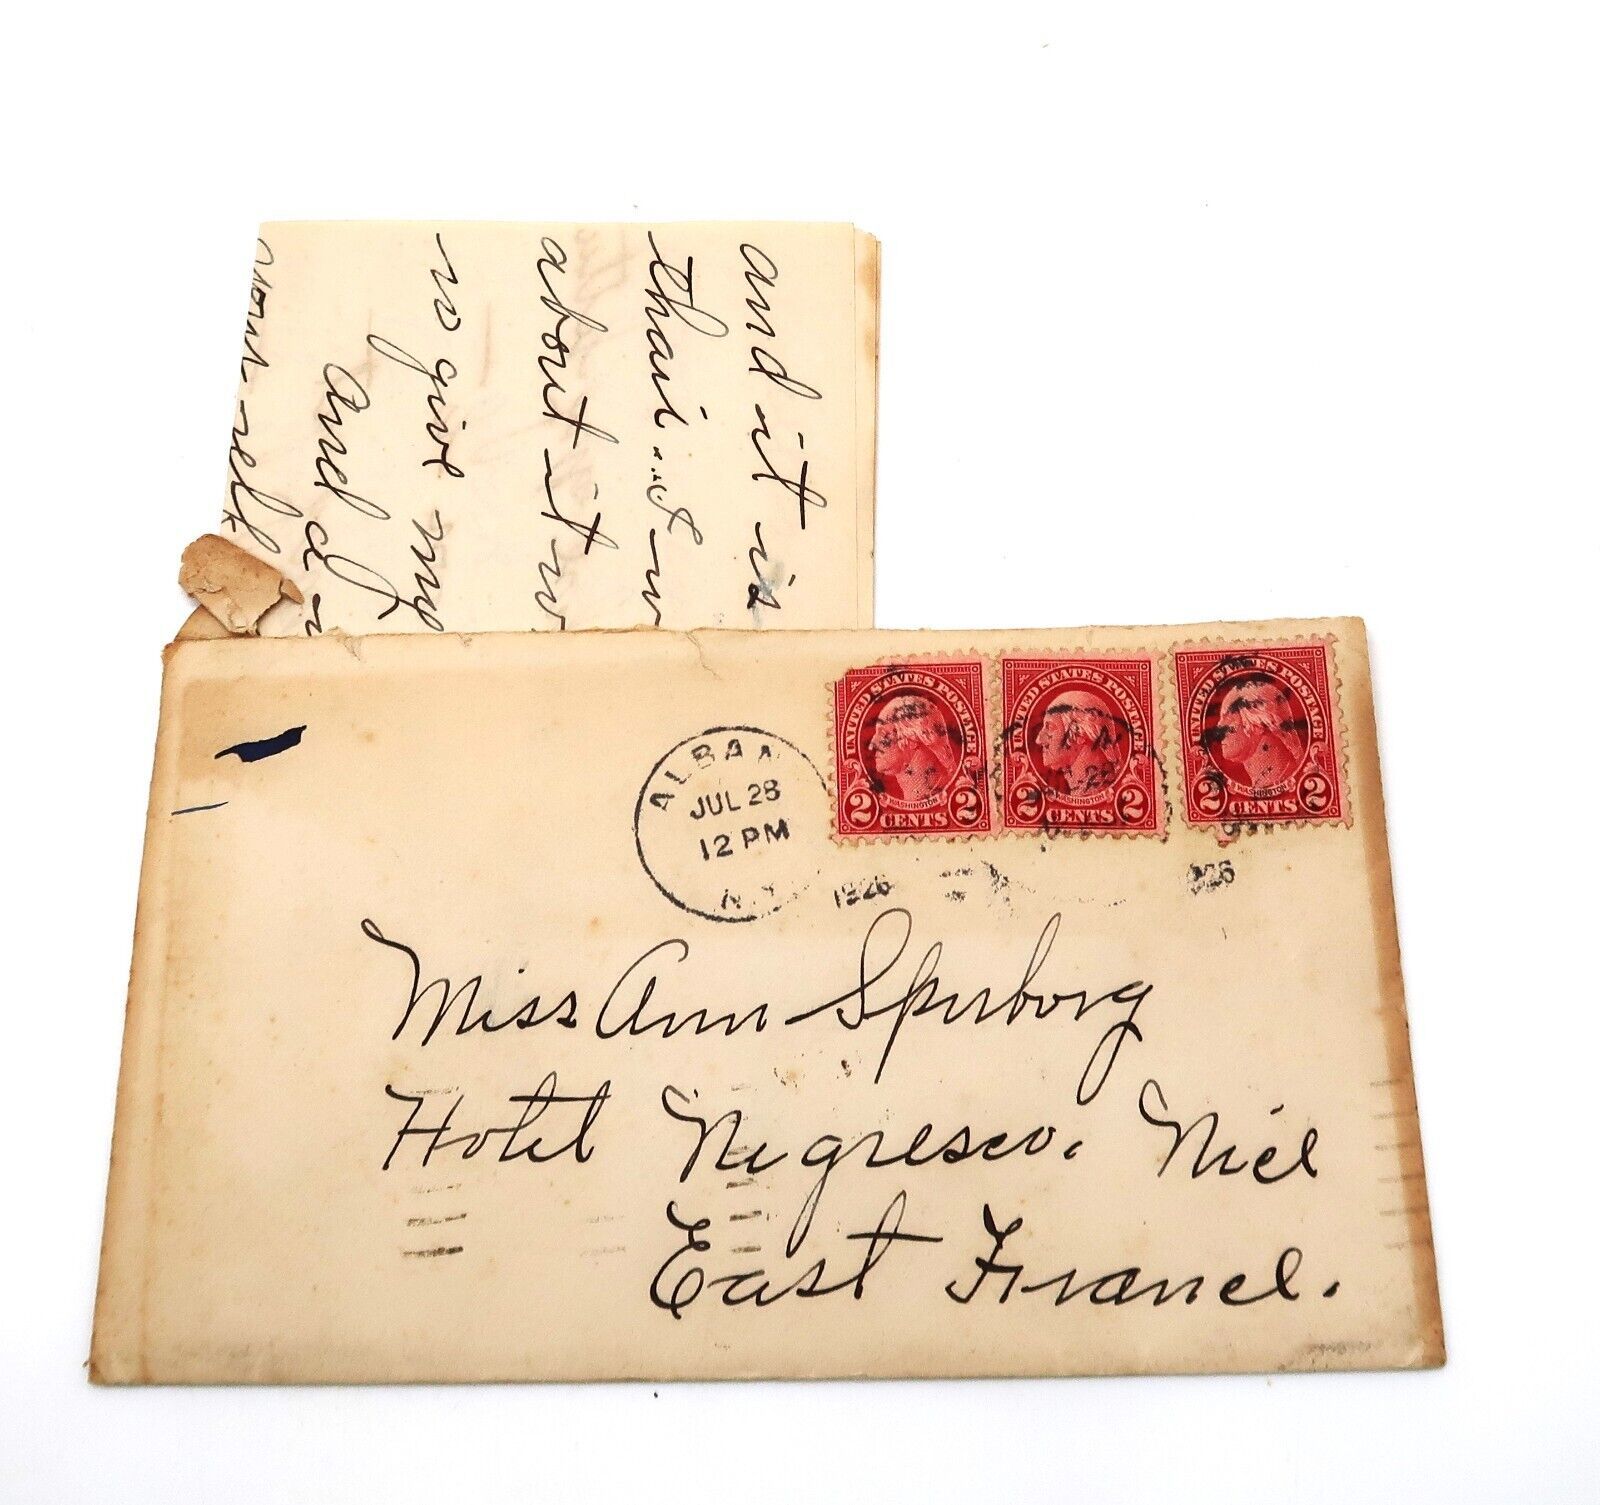 and it is
about it w
to give my
And
ALBA
JUL 28
12 PM
N.Y.
1926
UNITED STATES POSTAGE
WASHINGTON
2 CENTS 2
UNITED STATES POSTAGE
WASHINGTON
2 CENTS 2
JUL 28
UNITED STATES POSTAGE
WASHINGTON
2 CENTS 2
1926
Miss Ann Spurborg
Hotel Negresco. Nice
East France.